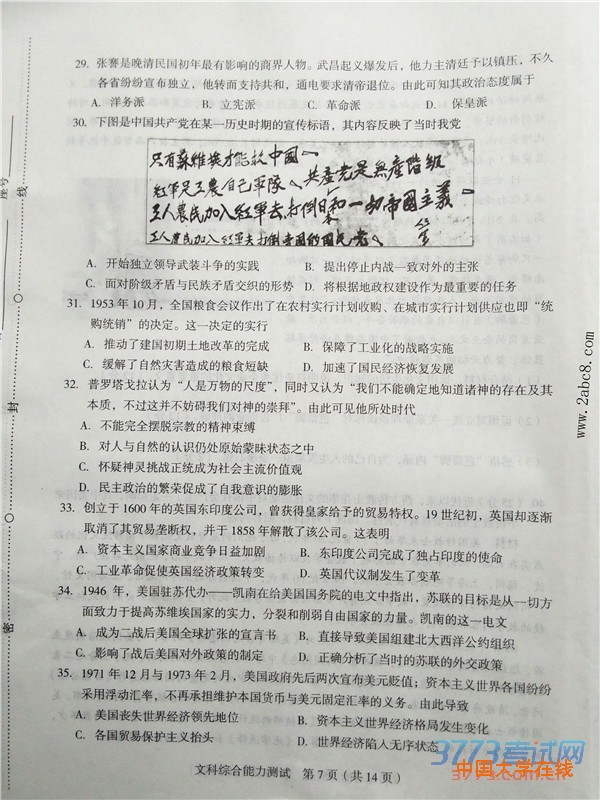 29. 张謇是晚清民国初年最有影响的商界人物。武昌起义爆发后，他力主清廷予以镇压，不久
各省纷纷宣布独立，他转而支持共和，通电要求清帝退位。由此可知其政治态度属于
A. 洋务派 B. 立宪派 C. 革命派 D. 保皇派
30. 下图是中国共产党在某一历史时期的宣传标语，其内容反映了当时我党
只有蘇維埃才能救中國
紅軍是工農自己軍隊 共產党是無產階級
工人農民加入紅軍去打倒日本和一切帝國主義
工人農民加入紅軍去打倒帝國的國民党
A. 开始独立领导武装斗争的实践 B. 提出停止内战一致对外的主张
C. 面对阶级矛盾与民族矛盾交织的形势 D. 将根据地政权建设作为最重要的任务
31. 1953 年 10 月，全国粮食会议作出了在农村实行计划收购、在城市实行计划供应也即“统
购统销”的决定。这一决定的实行
A. 推动了建国初期土地改革的完成 B. 保障了工业化的战略实施
C. 缓解了自然灾害造成的粮食短缺 D. 加速了国民经济恢复发展
32. 普罗塔戈拉认为“人是万物的尺度”，同时又认为“我们不能确定地知道诸神的存在及其
本质，不过这并不妨碍我们对神的崇拜”。由此可见他所处时代
A. 不能完全摆脱宗教的精神束缚
B. 对人与自然的认识仍处原始蒙昧状态之中
C. 怀疑神灵挑战正统成为社会主流价值观
D. 民主政治的繁荣促成了自我意识的膨胀
33. 创立于 1600 年的英国东印度公司，曾获得皇家给予的贸易特权。19 世纪初，英国却逐渐
取消了其贸易垄断权，并于 1858 年解散了该公司。这表明
A. 资本主义国家商业竞争日益加剧 B. 东印度公司完成了独占印度的使命
C. 工业革命促使英国经济政策转变 D. 英国代议制发生了变革
34. 1946 年，美国驻苏代办——凯南在给美国国务院的电文中指出，苏联的目标是从一切方
面致力于提高苏维埃国家的实力，分裂和削弱自由国家的力量。凯南的这一电文
A. 成为二战后美国全球扩张的宣言书 B. 直接导致美国组建北大西洋公约组织
C. 影响了战后美国对外政策的制定 D. 正确分析了当时的苏联的外交政策
35. 1971 年 12 月与 1973 年 2 月，美国政府先后两次宣布美元贬值；资本主义世界各国纷纷
采用浮动汇率，不再承担维护本国货币与美元固定汇率的义务。由此导致
A. 美国丧失世界经济领先地位 B. 资本主义世界经济格局发生变化
C. 各国贸易保护主义抬头 D. 世界经济陷入无序状态
文科综合能力测试 第 7 页（共 14 页）
座号
线
封
密
www.2abc8.com
3773考试网
中国大学在线